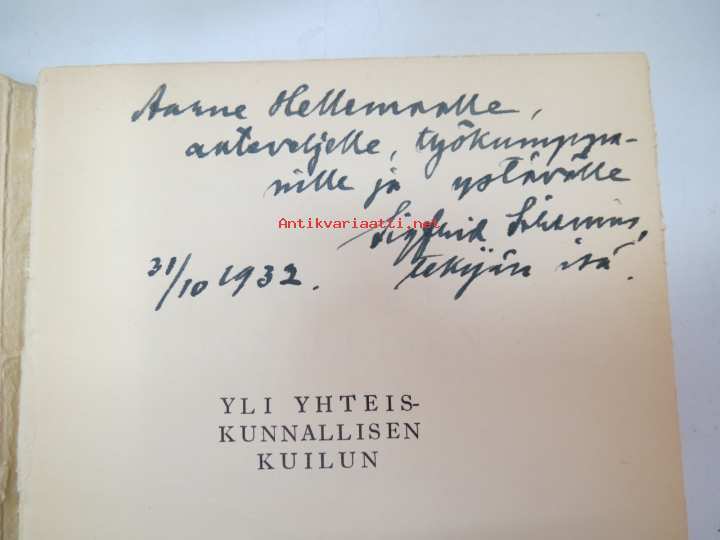 Aarne Hellemaalle,
aateveljelle, työkumppa-
nille ja ystävälle
Antikvariaatti.net
Sigfrid Sirenius,
tekijän isä.
31/10 1932.
YLI YHTEIS-
KUNNALLISEN
KUILUN